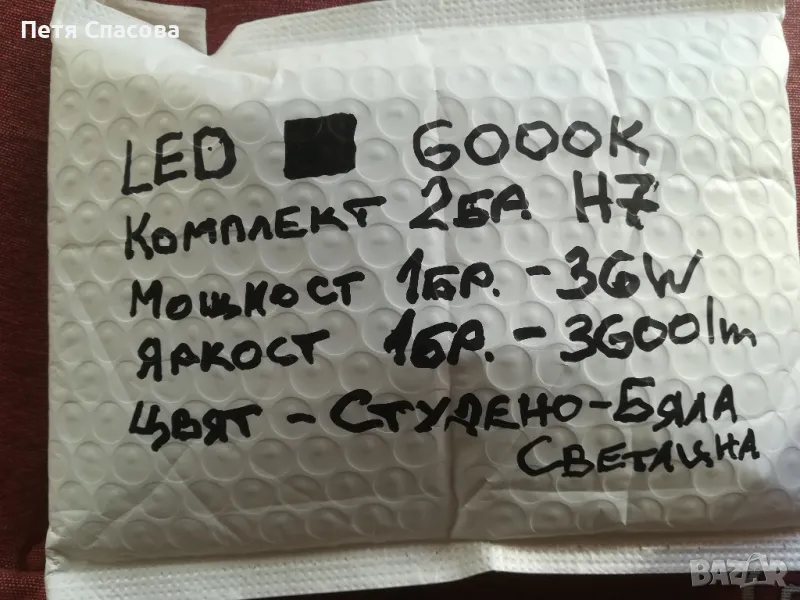 Петя Спасова
LED 6000K
Комплект 2бр. H7
Мощност 1бр. - 36W
Яркост 1бр. - 3600lm
Цвят - Студено-Бяла
Светлина
BAZAR